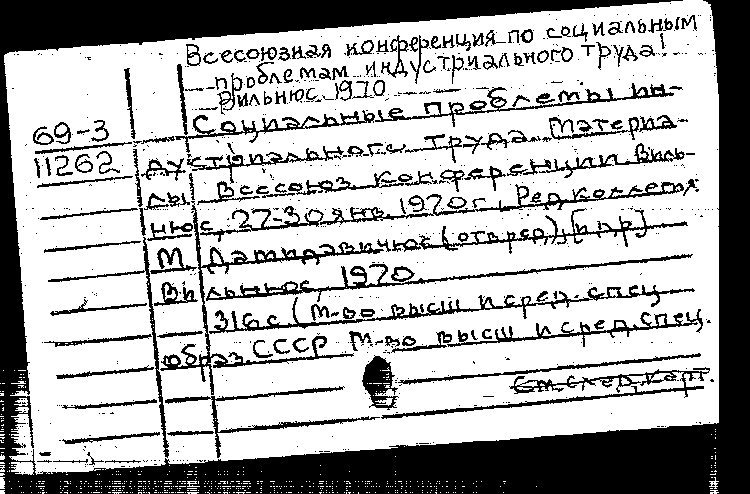 Всесоюзная конференция по социальным
проблемам индустриального труда!
Вильнюс 1970
69-3
Социальные проблемы ин-
11262
дустриального труда. Материа-
лы Всесоюз. конференции. Виль-
нюс, 27-30 янв. 1970г. Ред. коллегия
М. (отв. ред), [и др]
Вильнюс, 1970.
316с (М-во высш и сред. спец
образ. СССР М-во высш и сред. спец.
См. след. карт.